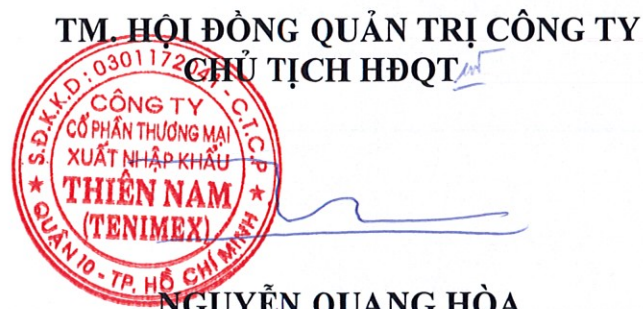 TM. HỘI ĐỒNG QUẢN TRỊ CÔNG TY
CHỦ TỊCH HĐQT
S.Đ.K.K.D: 0301172041 - C.T.C.P
CÔNG TY
CỔ PHẦN THƯƠNG MẠI
XUẤT NHẬP KHẨU
THIÊN NAM
(TENIMEX)
QUẬN 10 - TP. HỒ CHÍ MINH
NGUYỄN QUANG HÒA